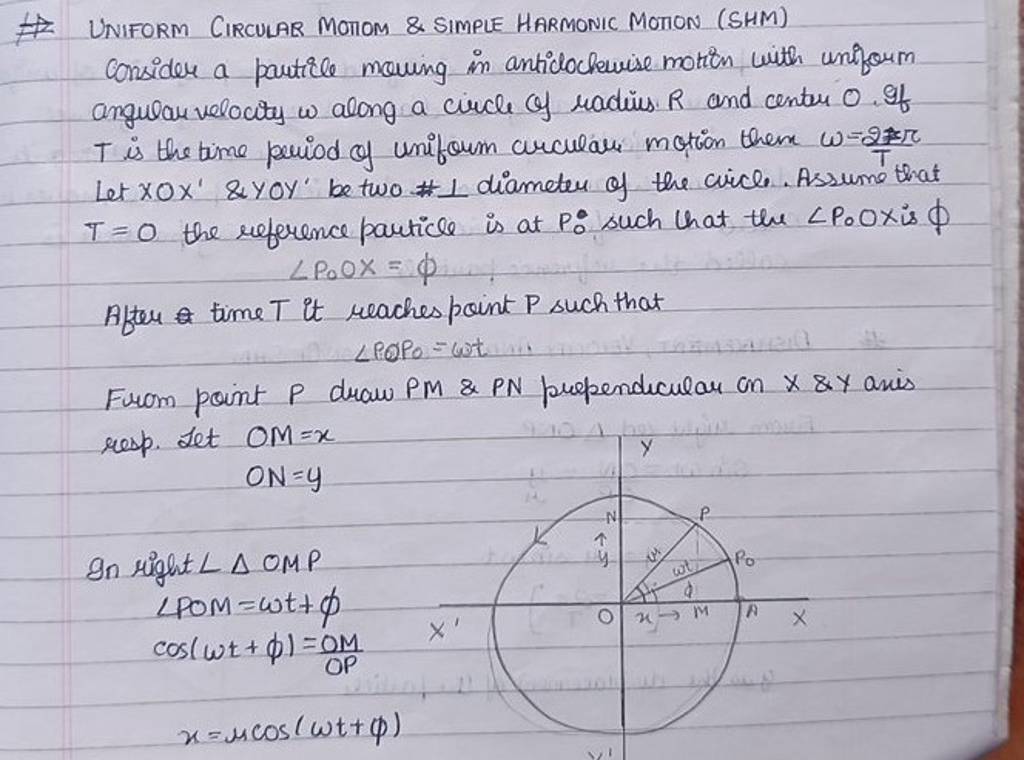 # UNIFORM CIRCULAR MOTIOM & SIMPLE HARMONIC MOTION (SHM)
Consider a particle moving in anticlockwise motion with uniform
angular velocity ω along a circle of radius R and center O. If
T is the time period of uniform circular motion them ω=2π/T
Let XOX' & YOY' be two ⊥ diameter of the circle. Assume that
T=0 the reference particle is at P₀ such that the ∠P₀OX is ϕ
∠P₀OX = ϕ
After time T it reaches point P such that
∠POP₀ = ωt
From point P draw PM & PN prependicular on X & Y axis
resp. Let OM=x
ON=y
Y
N
P
y
r
ωt
P₀
ϕ
X'
O
x → M
A
X
Y'
In right ∠ Δ OMP
∠POM=ωt+ϕ
cos(ωt+ϕ)=OM/OP
x=rcos(ωt+ϕ)